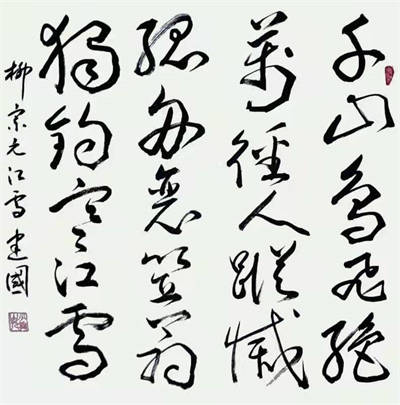 千山鳥飛絕
萬徑人蹤滅
孤舟蓑笠翁
獨釣寒江雪
柳宗元江雪 建國